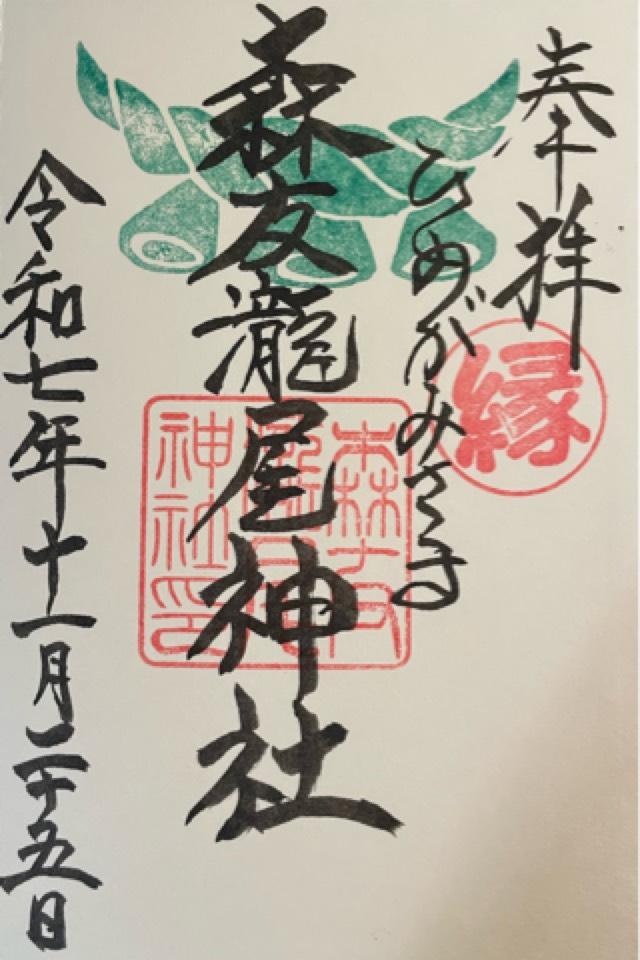 奉拝
縁
ひめがみさま
森友瀧尾神社
神社印
令和七年十一月二十五日